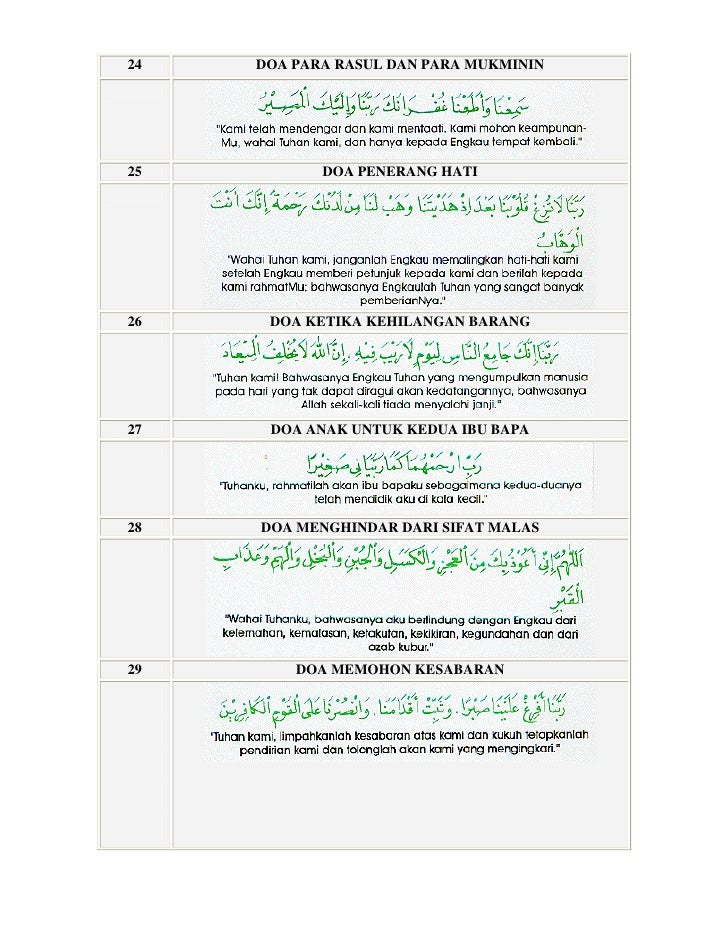 24 DOA PARA RASUL DAN PARA MUKMININ
سَمِعْنَا وَأَطَعْنَا غُفْرَانَكَ رَبَّنَا وَإِلَيْكَ الْمَصِيْرُ
"Kami telah mendengar dan kami mentaati. Kami mohon keampunan-
Mu, wahai Tuhan kami, dan hanya kepada Engkau tempat kembali."
25 DOA PENERANG HATI
رَبَّنَا لَا تُزِغْ قُلُوْبَنَا بَعْدَ إِذْ هَدَيْتَنَا وَهَبْ لَنَا مِنْ لَّدُنْكَ رَحْمَةً إِنَّكَ أَنْتَ
الْوَهَّابُ
"Wahai Tuhan kami, janganlah Engkau memalingkan hati-hati kami
setelah Engkau memberi petunjuk kepada kami dan berilah kepada
kami rahmatMu; bahwasanya Engkaulah Tuhan yang sangat banyak
pemberianNya."
26 DOA KETIKA KEHILANGAN BARANG
رَبَّنَا إِنَّكَ جَامِعُ النَّاسِ لِيَوْمٍ لَا رَيْبَ فِيْهِ . إِنَّ اللهَ لَا يُخْلِفُ الْمِيْعَادَ
"Tuhan kami! Bahwasanya Engkau Tuhan yang mengumpulkan manusia
pada hari yang tak dapat diragui akan kedatangannya, bahwasanya
Allah sekali-kali tiada menyalahi janji."
27 DOA ANAK UNTUK KEDUA IBU BAPA
رَبِّ ارْحَمْهُمَا كَمَا رَبَّيَانِي صَغِيْرًا
"Tuhanku, rahmatilah akan ibu bapaku sebagaimana kedua-duanya
telah mendidik aku di kala kecil."
28 DOA MENGHINDAR DARI SIFAT MALAS
اَللّٰهُمَّ إِنِّي أَعُوْذُ بِكَ مِنَ الْعَجْزِ وَالْكَسَلِ وَالْجُبْنِ وَالْبُخْلِ وَالْهَمِّ وَعَذَابِ
الْقَبْرِ
"Wahai Tuhanku, bahwasanya aku berlindung dengan Engkau dari
kelemahan, kemalasan, ketakutan, kekikiran, kegundahan dan dari
azab kubur."
29 DOA MEMOHON KESABARAN
رَبَّنَا أَفْرِغْ عَلَيْنَا صَبْرًا . وَثَبِّتْ أَقْدَامَنَا . وَانْصُرْنَا عَلَى الْقَوْمِ الْكَافِرِيْنَ
"Tuhan kami, limpahkanlah kesabaran atas kami dan kukuh tetapkanlah
pendirian kami dan tolonglah akan kami yang mengingkari."